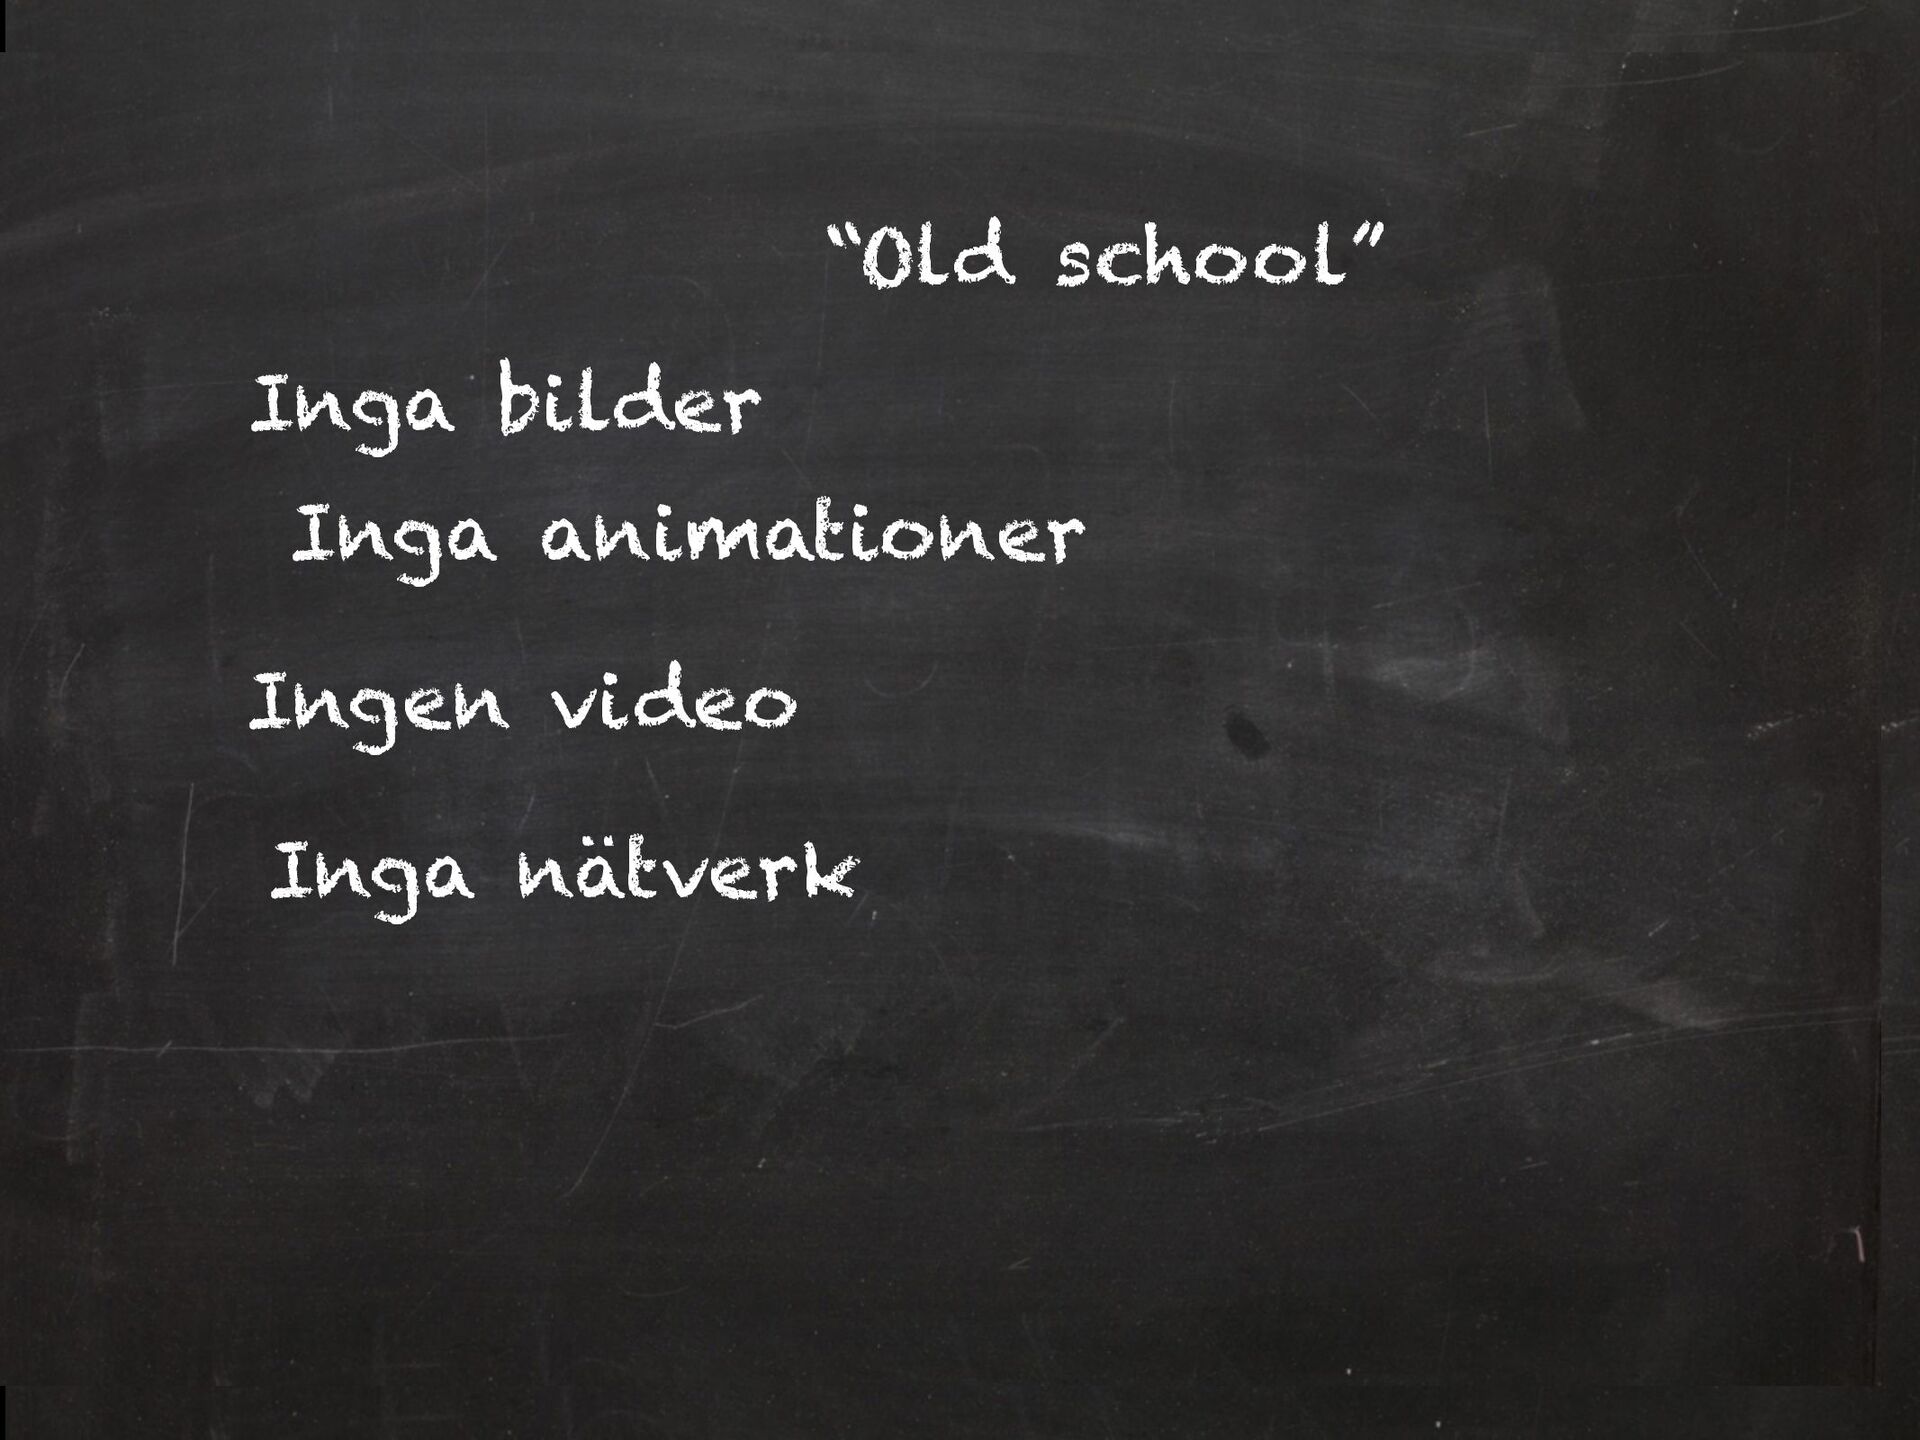 “Old school”
Inga bilder
Inga animationer
Ingen video
Inga nätverk